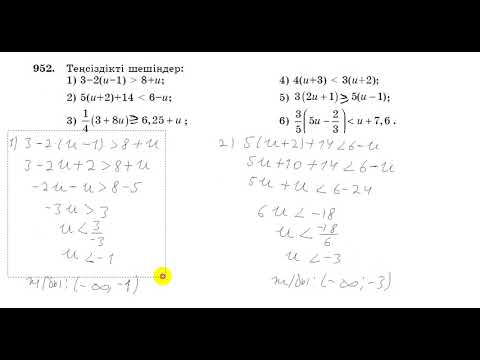 952. Теңсіздікті шешіндер:
1) 3−2(u−1) > 8+u;
2) 5(u+2)+14 < 6−u;
3) 1/4(3+8u) ≥ 6,25+u;
4) 4(u+3) < 3(u+2);
5) 3(2u+1) ≥ 5(u−1);
6) 3/5(5u−2/3) < u+7,6.
1) 3−2·(u−1)>8+u
3−2u+2>8+u
−2u−u>8−5
−3u>3
u<3/−3
u<−1
ж/бы: (−∞;−1)
2) 5(u+2)+14<6−u
5u+10+14<6−u
5u+u<6−24
6u<−18
u<−18/6
u<−3
ж/бы: (−∞;−3)